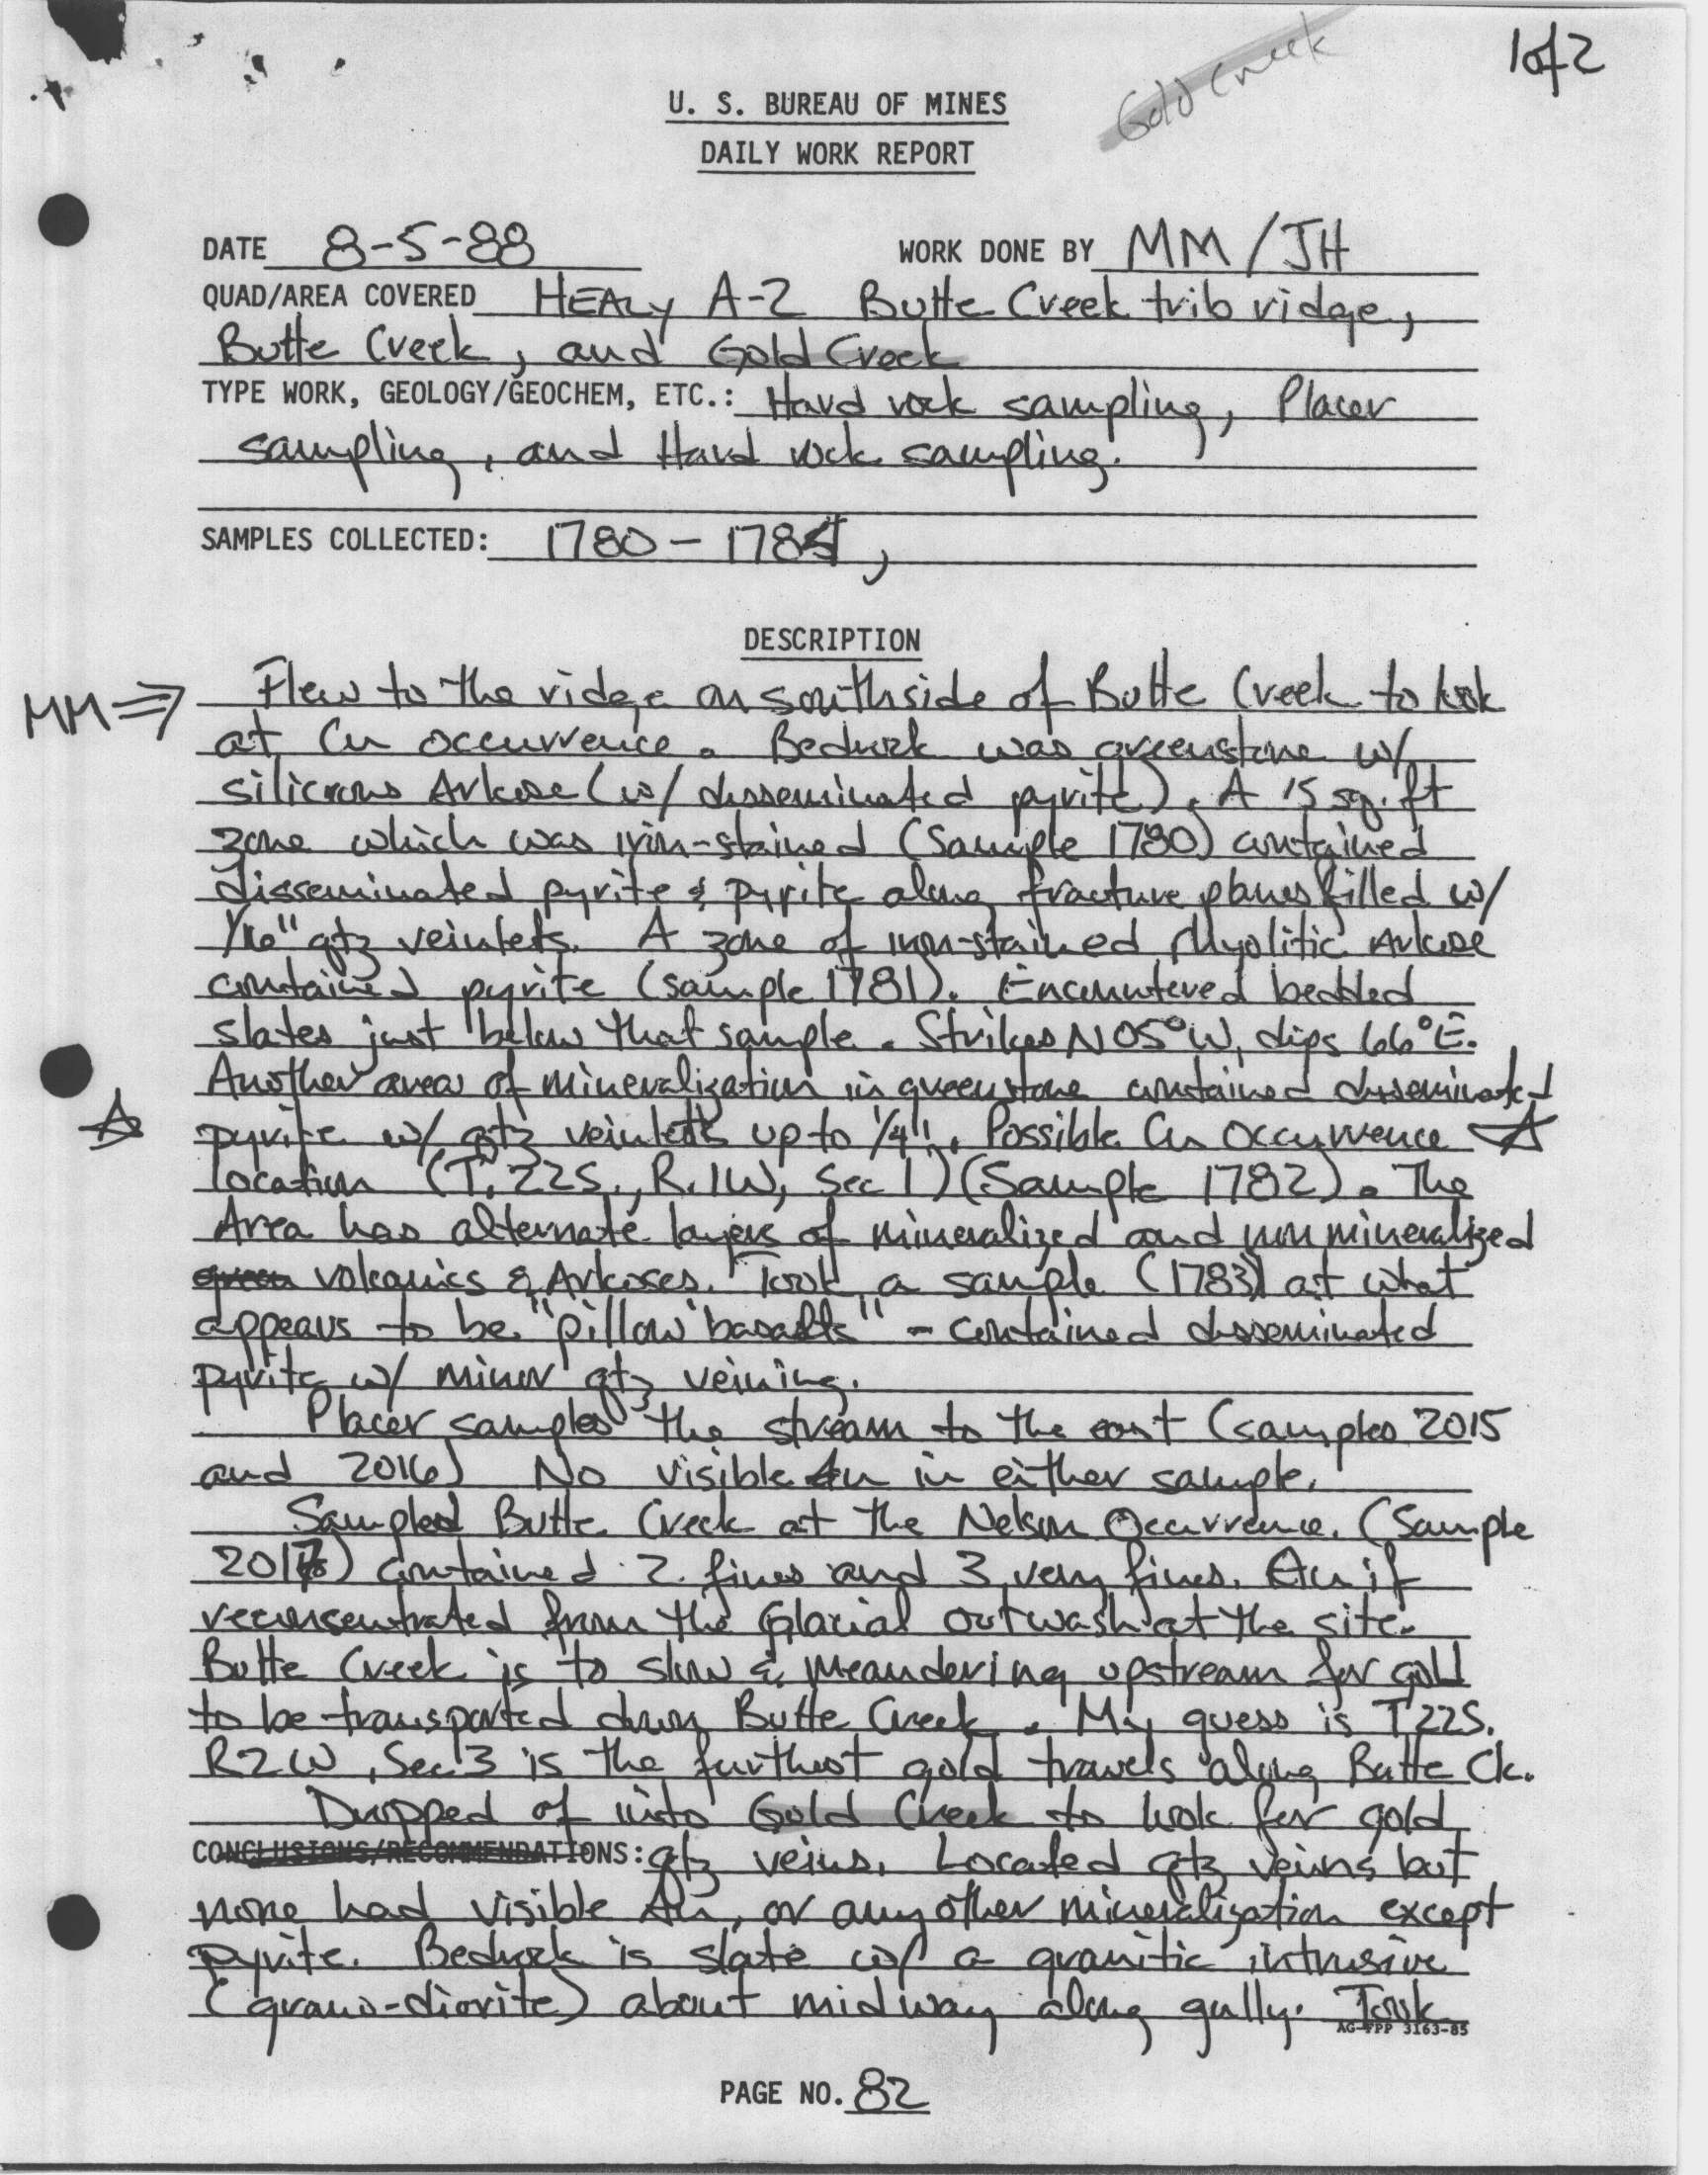 1 of 2
Gold Creek
U. S. BUREAU OF MINES
DAILY WORK REPORT
DATE 8-5-88 WORK DONE BY MM/JH
QUAD/AREA COVERED HEALY A-2 Butte Creek trib ridge,
Butte Creek, and Gold Creek
TYPE WORK, GEOLOGY/GEOCHEM, ETC.: Hard rock sampling, Placer
sampling, and Hard rock sampling.
SAMPLES COLLECTED: 1780-1784,
DESCRIPTION
MM⇒ Flew to the ridge on southside of Butte Creek to look
at Cu occurrence. Bedrock was greenstone w/
silicious Arkose (w/ disseminated pyrite). A 15 sq. ft
zone which was iron-stained (Sample 1780) contained
disseminated pyrite & pyrite along fracture planes filled w/
1/16" qtz veinlets. A zone of iron-stained Rhyolitic Arkose
contained pyrite (sample 1781). Encountered bedded
slates just below that sample. Strikes N05°W, dips 66°E.
Another area of mineralization in greenstone contained disseminated
☆ pyrite w/ qtz veinlets up to 1/4". Possible Cu Occurrence ☆
location (T.22S., R.1W, Sec 1) (Sample 1782). The
Area has alternate layers of mineralized and non mineralized
green volcanics & Arkoses. Took a sample (1783) at what
appears to be "pillow basalts" - contained disseminated
pyrite w/ minor qtz veining.
Placer samples the stream to the east (samples 2015
and 2016) No visible Au in either sample.
Sampled Butte Creek at the Nelson Occurrence. (Sample
2017) contained 2 fines and 3 very fines. Au if
reconsentrated from the Glacial outwash at the site.
Butte Creek is to slow & meandering upstream for gold
to be transported down Butte Creek. My guess is T22S.
R2W, Sec 3 is the furthest gold travels along Butte Ck.
Dropped of into Gold Creek to look for gold
CONCLUSIONS/RECOMMENDATIONS: qtz veins. Located qtz veins but
none had visible Au, or any other mineralization except
pyrite. Bedrock is slate w/ a granitic intrusive
(grano-diorite) about midway along gully. Took
AG-FPP 3163-85
PAGE NO. 82